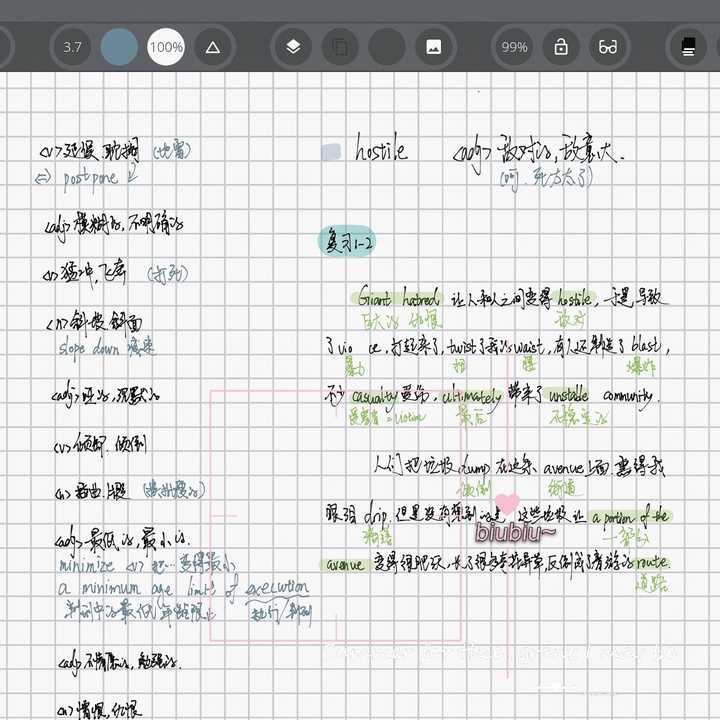 3.7
100%
99%
<v>延误,耽搁
(=) postpone
<adj>模糊的,不明确的
<v>猛冲,飞奔 (打死)
<n>斜坡,斜面
slope down
<adj>哑的,沉默的
<v>倾卸.倾倒
<n>插曲.片段
<adj>最低的,最小的.
minimize <v> 把…变得最小
a minimum age limit of execution
判刑中的最低年龄限止
执行/判刑
<adj>不情愿的,勉强的.
<n>憎恨,仇恨
hostile <adj>敌对的,敌意大.
(呵.死方太了)
复习1-2
Giant hatred 让人和人之间变得 hostile, 于是导致
巨大的 仇恨 敌对
了 vio ce, 打起来了, twist了我的waist, 有人还制造了 blast,
暴力 扭 腰 爆炸
不少 casualty 受伤, ultimately 带来了 unstable community.
受害者 = victim 最后 不稳定的
人们把垃圾 dump 在这条 avenue 上面. 害得我
倾倒 街道
眼泪 drip. 但是 这些垃圾让 a portion of the
biubiu~
一部分
avenue 变得很肥沃, 长了很多奇花异草, 反倒成了旅游的 route.
道路